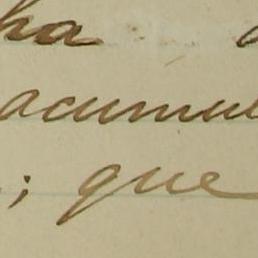 ha
acumul
; que